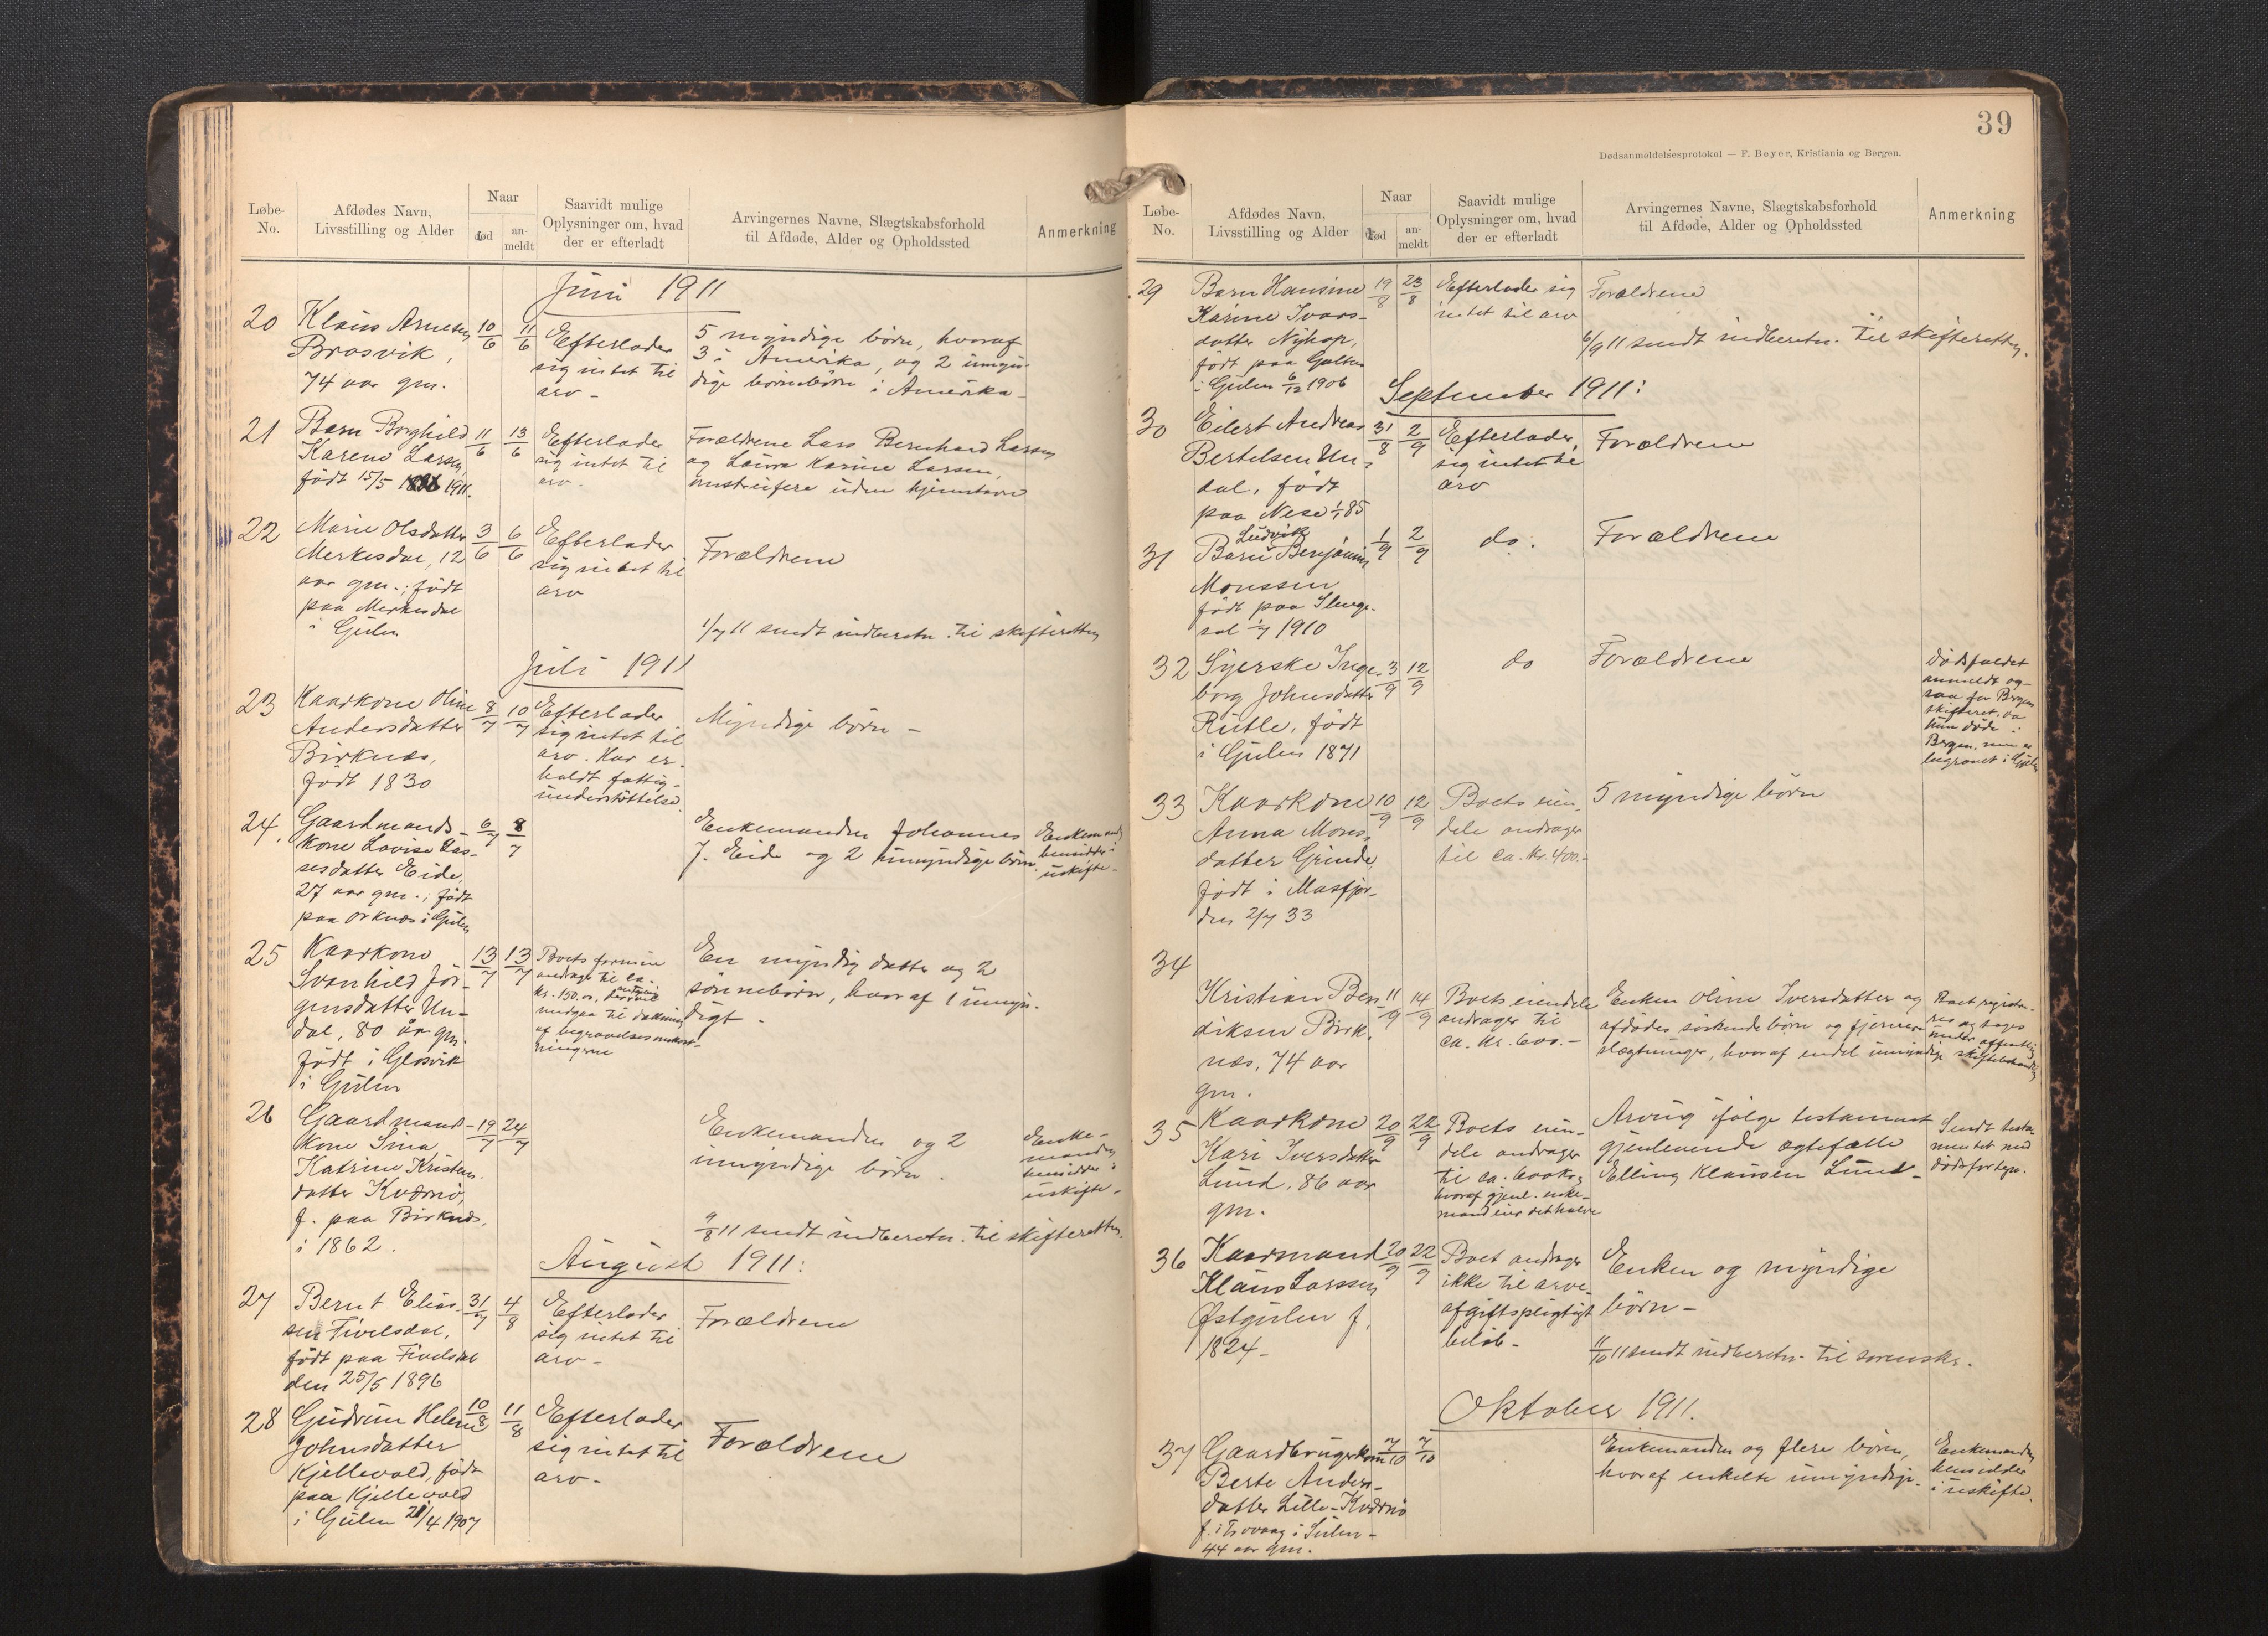 Løbe-
No.
Afdødes Navn,
Livsstilling og Alder
Naar
død
an-
meldt
Saavidt mulige
Oplysninger om, hvad
der er efterladt
Arvingernes Navne, Slægtskabsforhold
til Afdøde, Alder og Opholdssted
Anmerkning
Juni 1911
20
Klaus Arnesen
Brosvik,
74 aar gm.
10/6
11/6
Efterlader
sig intet til
arv -
5 myndige börn, hvoraf
3 i Amerika, og 2 umyn-
dige börnebörn i Amerika -
21
Barn Borghild
Karene Larsen,
födt 15/5 1911.
11/6
13/6
Efterlader
sig intet til
arv -
Forældrene Lars Bernhard Larsen
og Laura Karine Larsen,
omstreifere uden hjemstavn
22
Marie Olsdatter
Merkesdal, 12
aar gm.; födt
paa Merkesdal
i Gulen
3/6
6/6
Efterlader
sig intet til
arv
Forældrene
1/7 11 sendt indberetn. til skifteretten
Juli 1911
23
Kaarkone Oline
Andersdatter
Birknæs,
födt 1830
8/7
10/7
Efterlader
sig intet til
arv. Har er-
holdt fattig-
understöttelse.
Myndige börn -
24.
Gaardmands-
kone Lovise Las-
sesdatter Eide,
27 aar gm.; födt
paa Orknæs i Gulen
6/7
8/7
Enkemanden Johannes
J. Eide og 2 umyndige börn.
Enkemand
hensidder i
uskifte -
25
Kaarkone
Svanhild Jör-
gensdatter Un-
dal, 80 år gm.
födt i Glosvik
i Gulen
13/7
13/7
Boets formue
andrager til ca.
kr. 150.00, der vil antagelig
medgaa til dækning
af begravelsesomkost-
ningerne
En myndig datter og 2
sönnebörn, hvoraf 1 umyn-
digt -
26
Gaardmands-
kone Sina
Katrine Kristens-
datter Kværnö,
f. paa Birknæs,
i 1862.
19/7
24/7
Enkemanden og 2
umyndige börn.
Enke-
manden
hensidder i
uskifte -
9/8 11 sendt indberetn. til skifteretten.
August 1911:
27
Bernt Elias-
sen Fivelsdal,
födt paa Fivelsdal
den 25/5 1896
31/7
4/8
Efterlader
sig intet til
arv -
Forældrene
28
Gudrun Helene
Johnsdatter
Kjellevold, födt
paa Kjellevold
i Gulen 21/4 1907
10/8
11/8
Efterlader
sig intet til
arv -
Forældrene
39
Dødsanmeldelsesprotokol — F. Beyer, Kristiania og Bergen.
Løbe-
No.
Afdødes Navn,
Livsstilling og Alder
Naar
død
an-
meldt
Saavidt mulige
Oplysninger om, hvad
der er efterladt
Arvingernes Navne, Slægtskabsforhold
til Afdøde, Alder og Opholdssted
Anmerkning
29
Barn Hansine
Karine Ivars-
datter Nyhap,
födt paa Galten
i Gulen 6/12 1906
19/8
23/8
Efterlader sig
intet til arv
Forældrene
6/9 11 sendt indberetn. til skifteretten.
September 1911:
30
Eilert Andreas
Bertelsen Un-
dal, födt
paa Nese 1/1 85
31/8
2/9
Efterlader
sig intet til
arv
Forældrene
31
Ludvik
Barn Benjamin
Monssen
födt paa Slenge-
sol 1/7 1910
1/9
2/9
do.
Forældrene
32
Syerske Inge-
borg Johnsdatter
Rutle, födt
i Gulen 1871
3/9
12/9
do
Forældrene
Dödsfaldet
anmeldt og-
saa for Bergens
skifteret, da
hun döde i
Bergen, men er
begravet i Gulen
33
Kaarkone
Anna Mons-
datter Grinde,
födt i Masfjor-
den 2/7 33
10/9
12/9
Boets eien-
dele andrager
til ca. kr. 400.-
5 myndige börn
34
Kristian Ben-
diksen Birk-
næs, 74 aar
gm.
11/9
14/9
Boets eiendele
andrager til
ca. kr. 600.-
Enken Oline Iversdatter og
afdödes söskendebörn og fjernere
slægtninger, hvoraf endel umyndige
Boet registre-
res og tages
under offentlig
skiftebehandling
35
Kaarkone
Kari Iversdatter
Lund, 86 aar
gm.
20/9
22/9
Boets eien-
dele andrager
til ca. 600 kr.,
hvoraf gjenl. enke-
mand eier det halve
Arving ifölge testament
gjenlevende ægtefælle
Elling Klausen Lund -
Sendt testa-
mentet med
dödsfortegn.
36
Kaarmand
Klaus Larssen
Østgulen f.
1824 -
20/9
22/9
Boet andrager
ikke til arve-
afgiftspligtigt
belöb -
Enken og myndige
börn -
11/10 11 sendt indberetn. til sorenskr.
Oktober 1911.
37
Gaardbrugerkone
Berte Anders-
datter Lille-Kværnö
44 aar gm.
7/10
7/10
Enkemanden og flere börn,
hvoraf enkelte umyndige -
Enkemanden
hensidder
i uskifte.